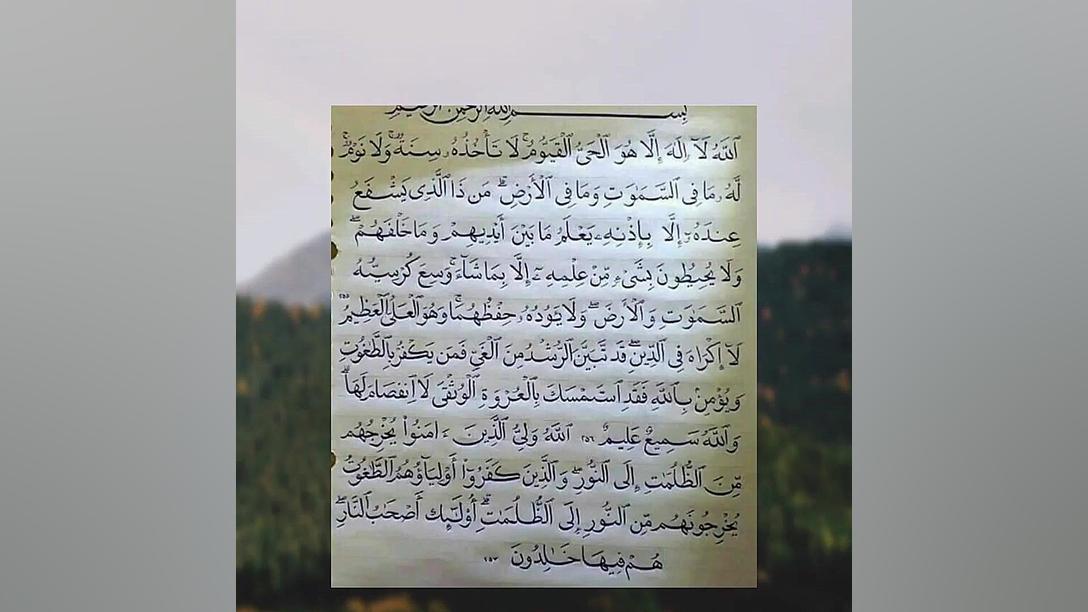 بِسْمِ اللَّهِ الرَّحْمَنِ الرَّحِيمِ
ٱللَّهُ لَآ إِلَٰهَ إِلَّا هُوَ ٱلْحَىُّ ٱلْقَيُّومُ ۚ لَا تَأْخُذُهُۥ سِنَةٌ وَلَا نَوْمٌ ۚ
لَّهُۥ مَا فِى ٱلسَّمَٰوَٰتِ وَمَا فِى ٱلْأَرْضِ ۗ مَن ذَا ٱلَّذِى يَشْفَعُ
عِندَهُۥٓ إِلَّا بِإِذْنِهِۦ ۚ يَعْلَمُ مَا بَيْنَ أَيْدِيهِمْ وَمَا خَلْفَهُمْ ۖ
وَلَا يُحِيطُونَ بِشَىْءٍ مِّنْ عِلْمِهِۦٓ إِلَّا بِمَا شَآءَ ۚ وَسِعَ كُرْسِيُّهُ
ٱلسَّمَٰوَٰتِ وَٱلْأَرْضَ ۖ وَلَا يَـُٔودُهُۥ حِفْظُهُمَا ۚ وَهُوَ ٱلْعَلِىُّ ٱلْعَظِيمُ ٢٥٥
لَآ إِكْرَاهَ فِى ٱلدِّينِ ۖ قَد تَّبَيَّنَ ٱلرُّشْدُ مِنَ ٱلْغَىِّ ۚ فَمَن يَكْفُرْ بِٱلطَّٰغُوتِ
وَيُؤْمِنۢ بِٱللَّهِ فَقَدِ ٱسْتَمْسَكَ بِٱلْعُرْوَةِ ٱلْوُثْقَىٰ لَا ٱنفِصَامَ لَهَا ۗ
وَٱللَّهُ سَمِيعٌ عَلِيمٌ ٢٥٦ ٱللَّهُ وَلِىُّ ٱلَّذِينَ ءَامَنُوا۟ يُخْرِجُهُم
مِّنَ ٱلظُّلُمَٰتِ إِلَى ٱلنُّورِ ۖ وَٱلَّذِينَ كَفَرُوٓا۟ أَوْلِيَآؤُهُمُ ٱلطَّٰغُوتُ
يُخْرِجُونَهُم مِّنَ ٱلنُّورِ إِلَى ٱلظُّلُمَٰتِ ۗ أُو۟لَٰٓئِكَ أَصْحَٰبُ ٱلنَّارِ ۖ
هُمْ فِيهَا خَٰلِدُونَ ٢٥٧